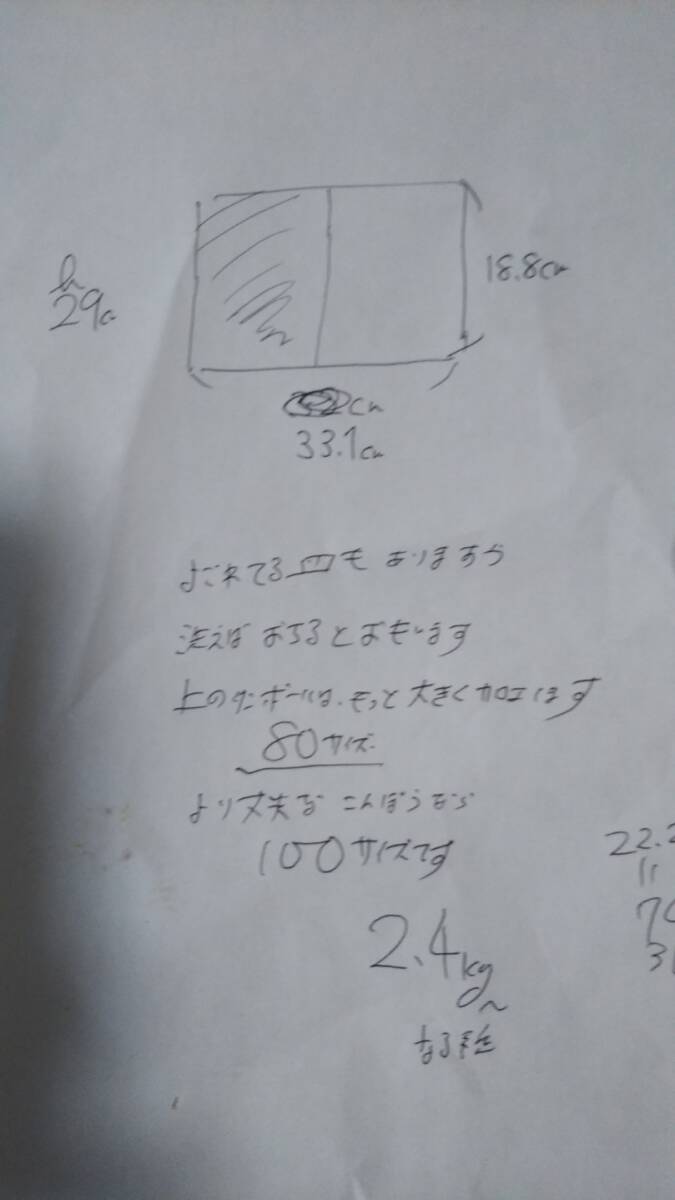 h
29c
18.8cm
cm
33.1cm
よごれてる皿も ありますが
洗えば おちるとおもいます
上のダンボールは、もっと大きく加工します
80サイズ
より丈夫な こんぽうなら
100サイズです
22.2
11
2.4kg